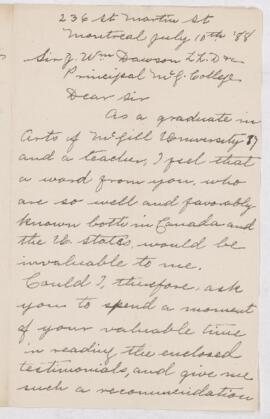 236 St Martin St
Montreal July 10th '88
Sir J. Wm Dawson LL.D &c
Principal McG. College
Dear Sir
As a graduate in
Arts of McGill University 87
and a teacher, I feel that
a word from you, who
are so well and favorably
known both in Canada and
the U. States, would be
invaluable to me.
Could I, therefore, ask
you to spend a moment
of your valuable time
in reading the enclosed
testimonials, and give me
such a recommendation